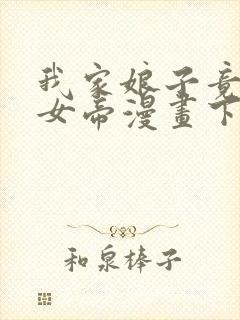 我家娘子竟
女帝漫畫下
和泉棒子